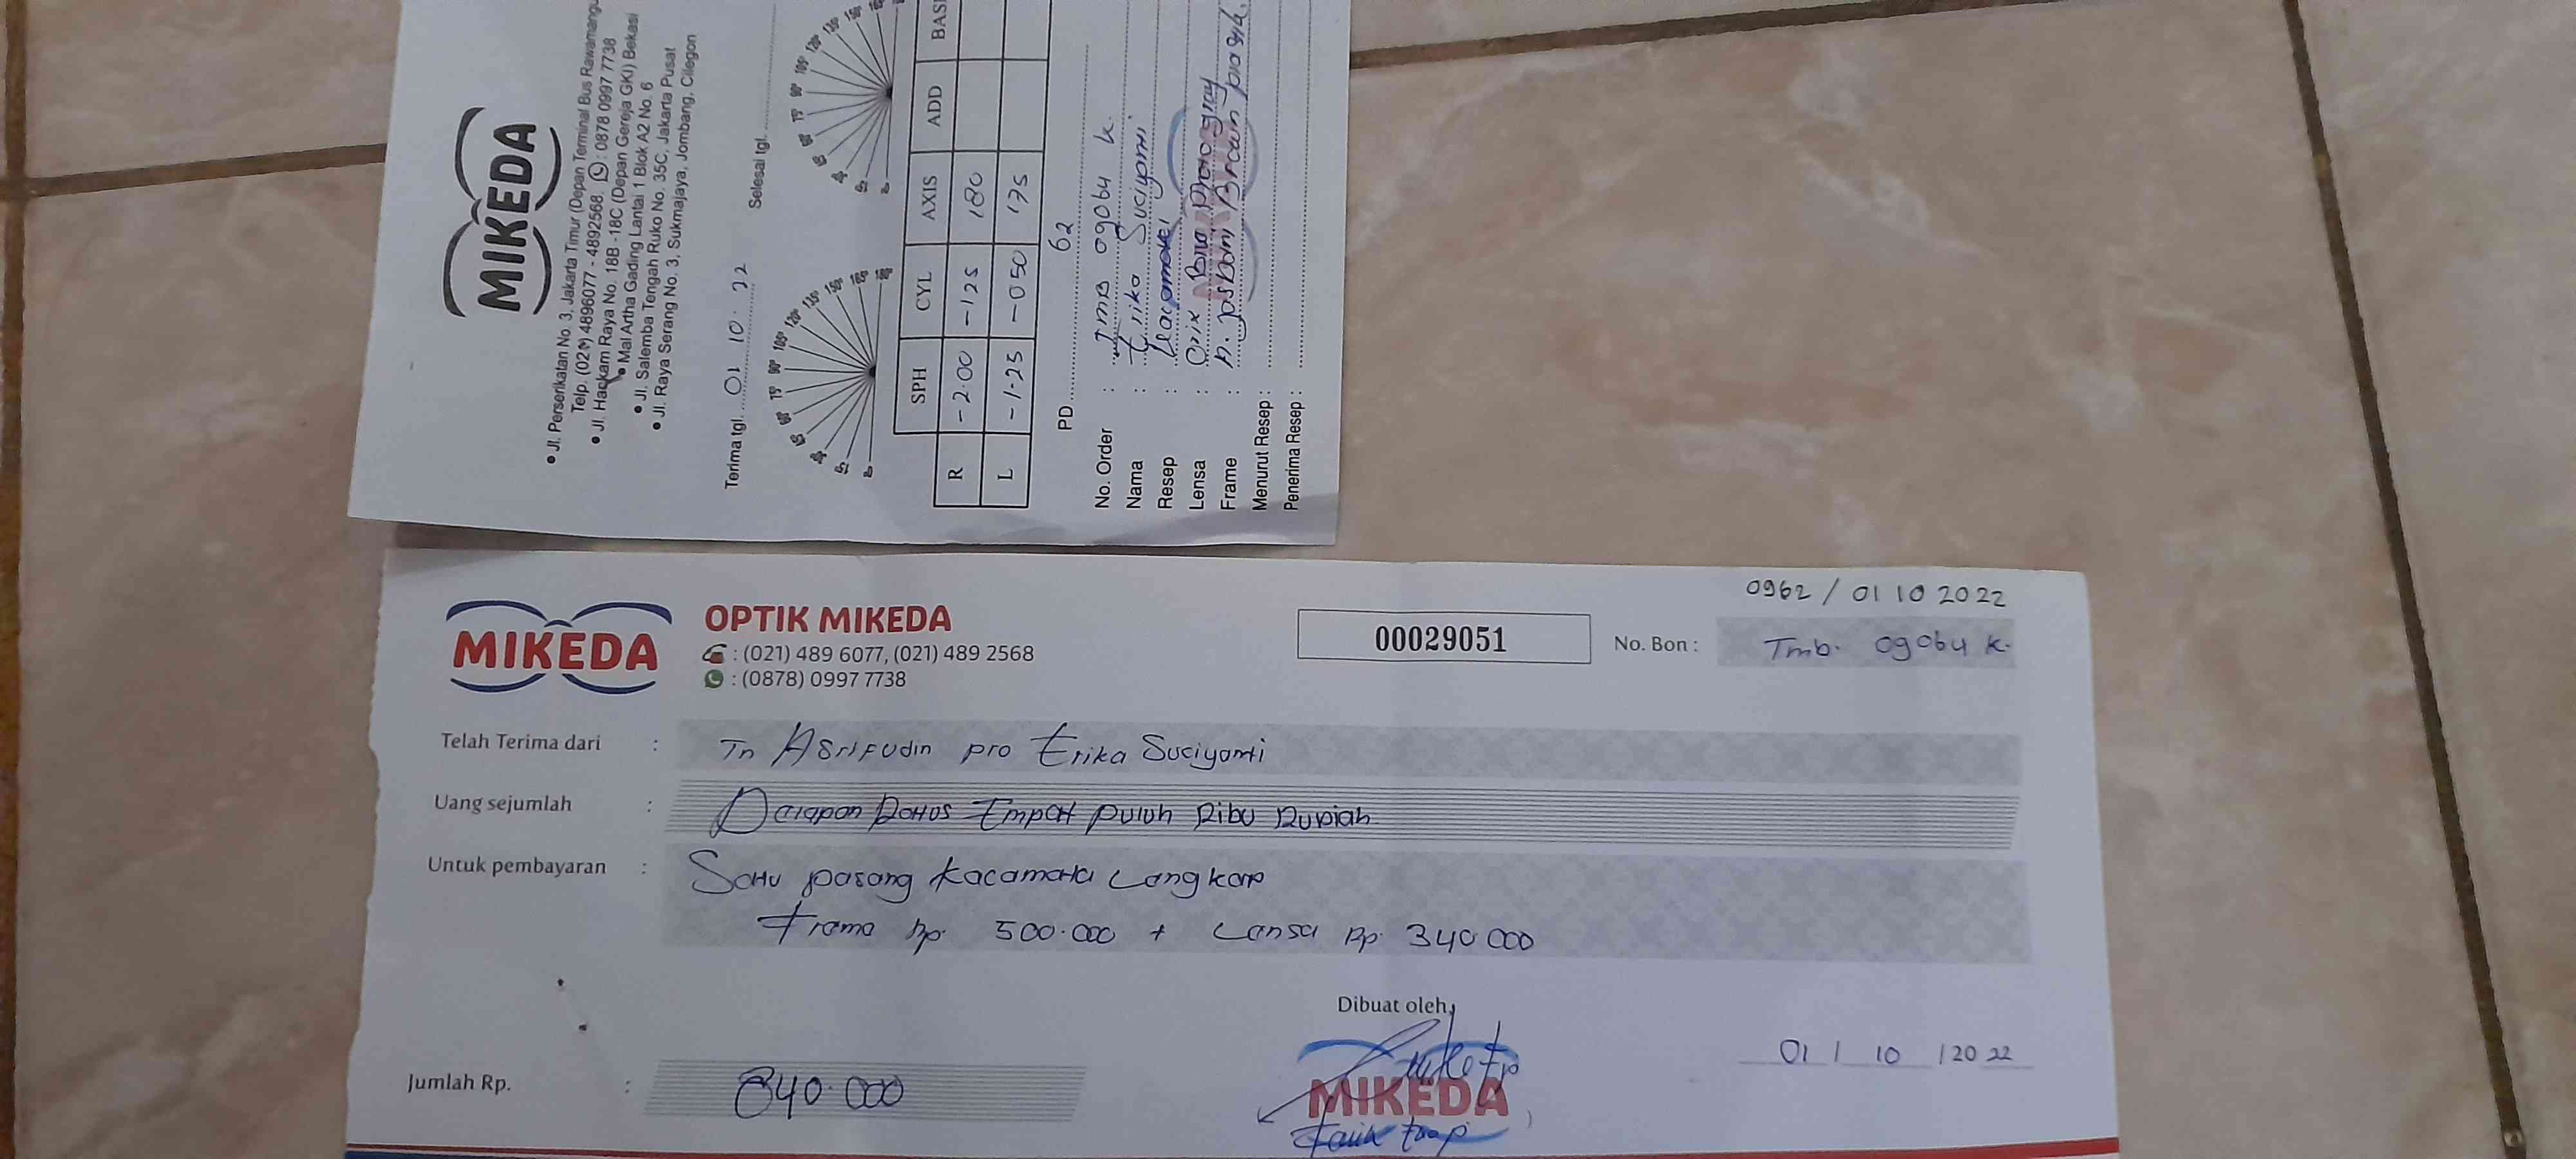 MIKEDA
• Jl. Perserikatan No. 3, Jakarta Timur (Depan Terminal Bus Rawamangu
Telp. (021) 4896077 - 4892568. : 0878 0997 7738
• Jl. Hankam Raya No. 18B -18C (Depan Gereja GKI) Bekasi
• Mal Artha Gading Lantai 1 Blok A2 No. 6
• Jl. Salemba Tengah Ruko No. 35C, Jakarta Pusat
• Jl. Raya Serang No. 3, Sukmajaya, Jombang, Cilegon
Terima tgl. 01. 10. 22 Selesai tgl.
SPH CYL AXIS ADD BASI
R -2.00 -125 180
L -1.25 -050 175
PD 62
No. Order : TMB 09064 K.
Nama : Erika Suciyanti
Resep : Kacamata
Lensa : Orix gray
Frame : Brown
Menurut Resep :
Penerima Resep :
0962 / 01 10 2022
MIKEDA
OPTIK MIKEDA
: (021) 489 6077, (021) 489 2568
: (0878) 0997 7738
00029051
No. Bon : Tmb. 09064 K.
Telah Terima dari : Tn Asrifudin pro Erika Suciyanti
Uang sejumlah : Delapan Ratus Empat Puluh Ribu Rupiah
Untuk pembayaran : Satu pasang kacamata Lengkap
Frame Rp. 500.000 + Lensa Rp. 340.000
Dibuat oleh,
01 / 10 / 20 22
Jumlah Rp. : 840.000
MIKEDA